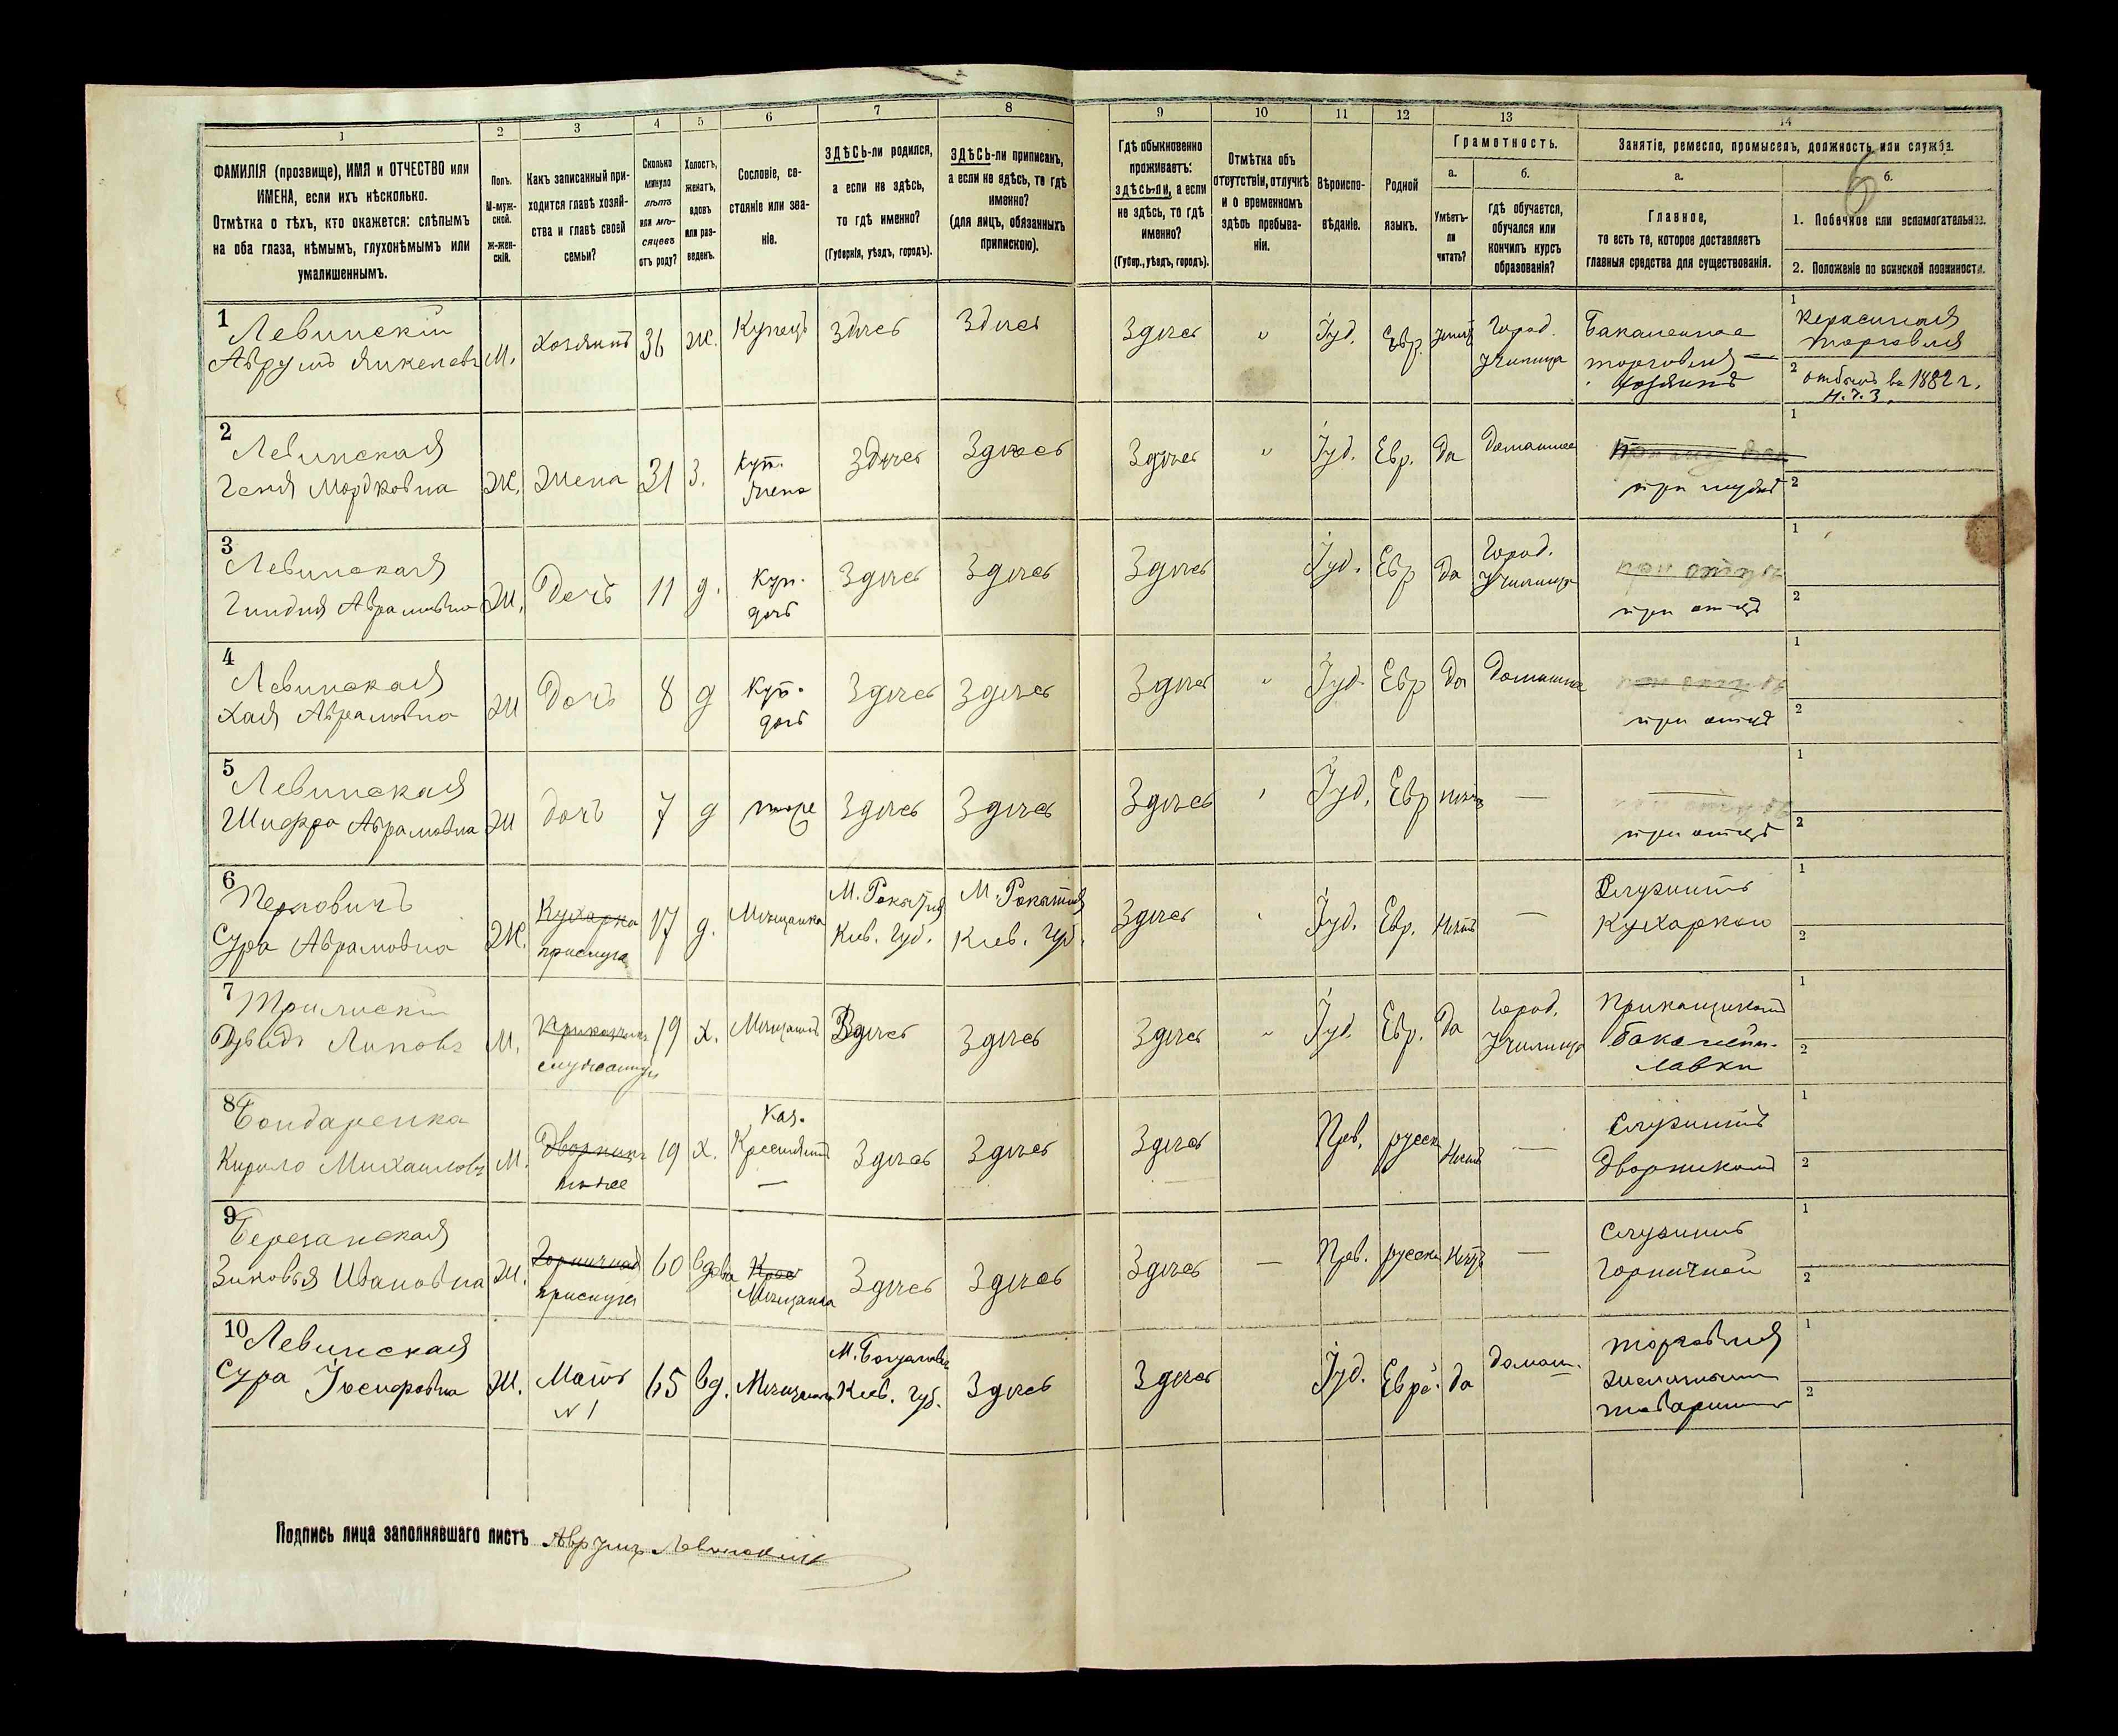 1 2 3 4 5 6 7 8 9 10 11 12 13 14
ФАМИЛІЯ (прозвище), ИМЯ и ОТЧЕСТВО или
ИМЕНА, если ихъ нѣсколько.
Отмѣтка о тѣхъ, кто окажется: слѣпымъ
на оба глаза, нѣмымъ, глухонѣмымъ или
умалишеннымъ.
Полъ.
М-муж-
ской.
Ж-жен-
скій.
Какъ записанный при-
ходится главѣ хозяй-
ства и главѣ своей
семьи?
Сколько
минуло
лѣтъ
или мѣ-
сяцевъ
отъ роду?
Холостъ,
женатъ,
вдовъ
или раз-
веденъ.
Сословіе, со-
стояніе или зва-
ніе.
ЗДѢСЬ-ли родился,
а если не здѣсь,
то гдѣ именно?
(Губернія, уѣздъ, городъ).
ЗДѢСЬ-ли приписанъ,
а если не здѣсь, то гдѣ
именно?
(для лицъ, обязанныхъ
припискою).
Гдѣ обыкновенно
проживаетъ:
здѣсь-ли, а если
не здѣсь, то гдѣ
именно?
(Губер., уѣздъ, городъ).
Отмѣтка объ
отсутствіи, отлучкѣ
и о временномъ
здѣсь пребыва-
ніи.
Вѣроиспо-
вѣданіе.
Родной
языкъ.
Грамотность.
а.
Умѣетъ-
ли
читать?
б.
Гдѣ обучается,
обучался или
кончилъ курсъ
образованія?
Занятіе, ремесло, промыселъ, должность или служба.
6
а.
Главное,
то есть то, которое доставляетъ
главныя средства для существованія.
б.
1. Побочное или вспомогательное.
2. Положеніе по воинской повинности.
1
Левинскій
Аврумъ Янкелевъ
М.
Хозяинъ
36
Ж.
Купецъ
Здѣсь
Здѣсь
Здѣсь
"
Іуд.
Евр.
Город.
Училище
Бакалейная
торговля —
хозяинъ
1
Керасиная
торговля
2
отбылъ въ 1882 г.
2
Левинская
Геня Мордковна
Ж.
Жена
31
З.
Куп.
жена
Здѣсь
Здѣсь
Здѣсь
"
Іуд.
Евр.
Да
Домашнее
при мужѣ
1
2
3
Левинская
Гиндля Аврамовна
Ж.
Дочь
11
д.
Куп.
дочь
Здѣсь
Здѣсь
Здѣсь
Іуд.
Евр
Да
Город.
Училище
при отцѣ
при отцѣ
1
2
4
Левинская
Хая Аврамовна
Ж
Дочь
8
д
Куп.
дочь
Здѣсь
Здѣсь
Здѣсь
"
Іуд.
Евр
Да
Домашнее
при отцѣ
при отцѣ
1
2
5
Левинская
Шифра Аврамовна
Ж
дочь
7
д
тоже
Здѣсь
Здѣсь
Здѣсь
Іуд.
Евр
Нѣтъ
—
при отцѣ
1
2
6
Сура Аврамовна
Ж.
Кухарка
прислуга
17
д.
Мѣщанка
Кіев. Губ.
Кіев. Губ.
Здѣсь
Іуд.
Евр.
Нѣтъ
—
Служитъ
Кухаркою
1
2
7
М.
Прикащикъ
служащій
19
х.
Мѣщанинъ
Здѣсь
Здѣсь
Здѣсь
"
Іуд.
Евр.
Да
Город.
Училище
Прикащикомъ
бакалейн.
лавки
1
2
8
Бондаренка
Кирило Михаиловъ
М.
Дворникъ
19
х.
Каз.
Крестянинъ
—
Здѣсь
Здѣсь
Здѣсь
Прав.
русск
Нѣтъ
—
Служитъ
Дворникомъ
1
2
9
Березанская
Зиновья Ивановна
Ж.
Горничная
прислуга
60
вдова
Крес
Мѣщанка
Здѣсь
Здѣсь
Здѣсь
—
Прав.
русски
Нѣтъ
—
Служитъ
Горничной
1
2
10
Левинская
Сура Іосифовна
Ж.
Мать
N 1
65
вд.
Мѣщанка
Кіев. Губ.
Здѣсь
Здѣсь
Іуд.
Евре.
да
домаш.
торговля
1
2
Подпись лица заполнявшаго листъ Аврумъ Левинскій